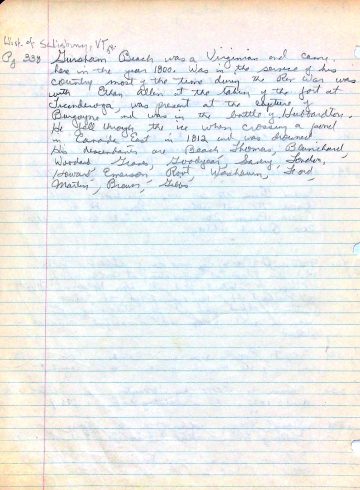 Hist. of Salisbury, VT.
Pg 339 Gursham Beach was a Virginian and came
here in the year 1800. Was in the service of his
country most of the time during the Rev War was
with Ethan Allen at the taking of the fort at
Ticonderoga, was present at the capture of
Burgoyne and was in the battle of Hubbardton.
He fell through the ice when crossing a pond
in Canada East in 1812 and was drowned
His descendants are Beach, Thomas, Blanchard,
Woodard, Graves, Goodyear, Landon,
Howard, Emerson, Root, Washburn, Ford,
Martin, Brown, Gibbs